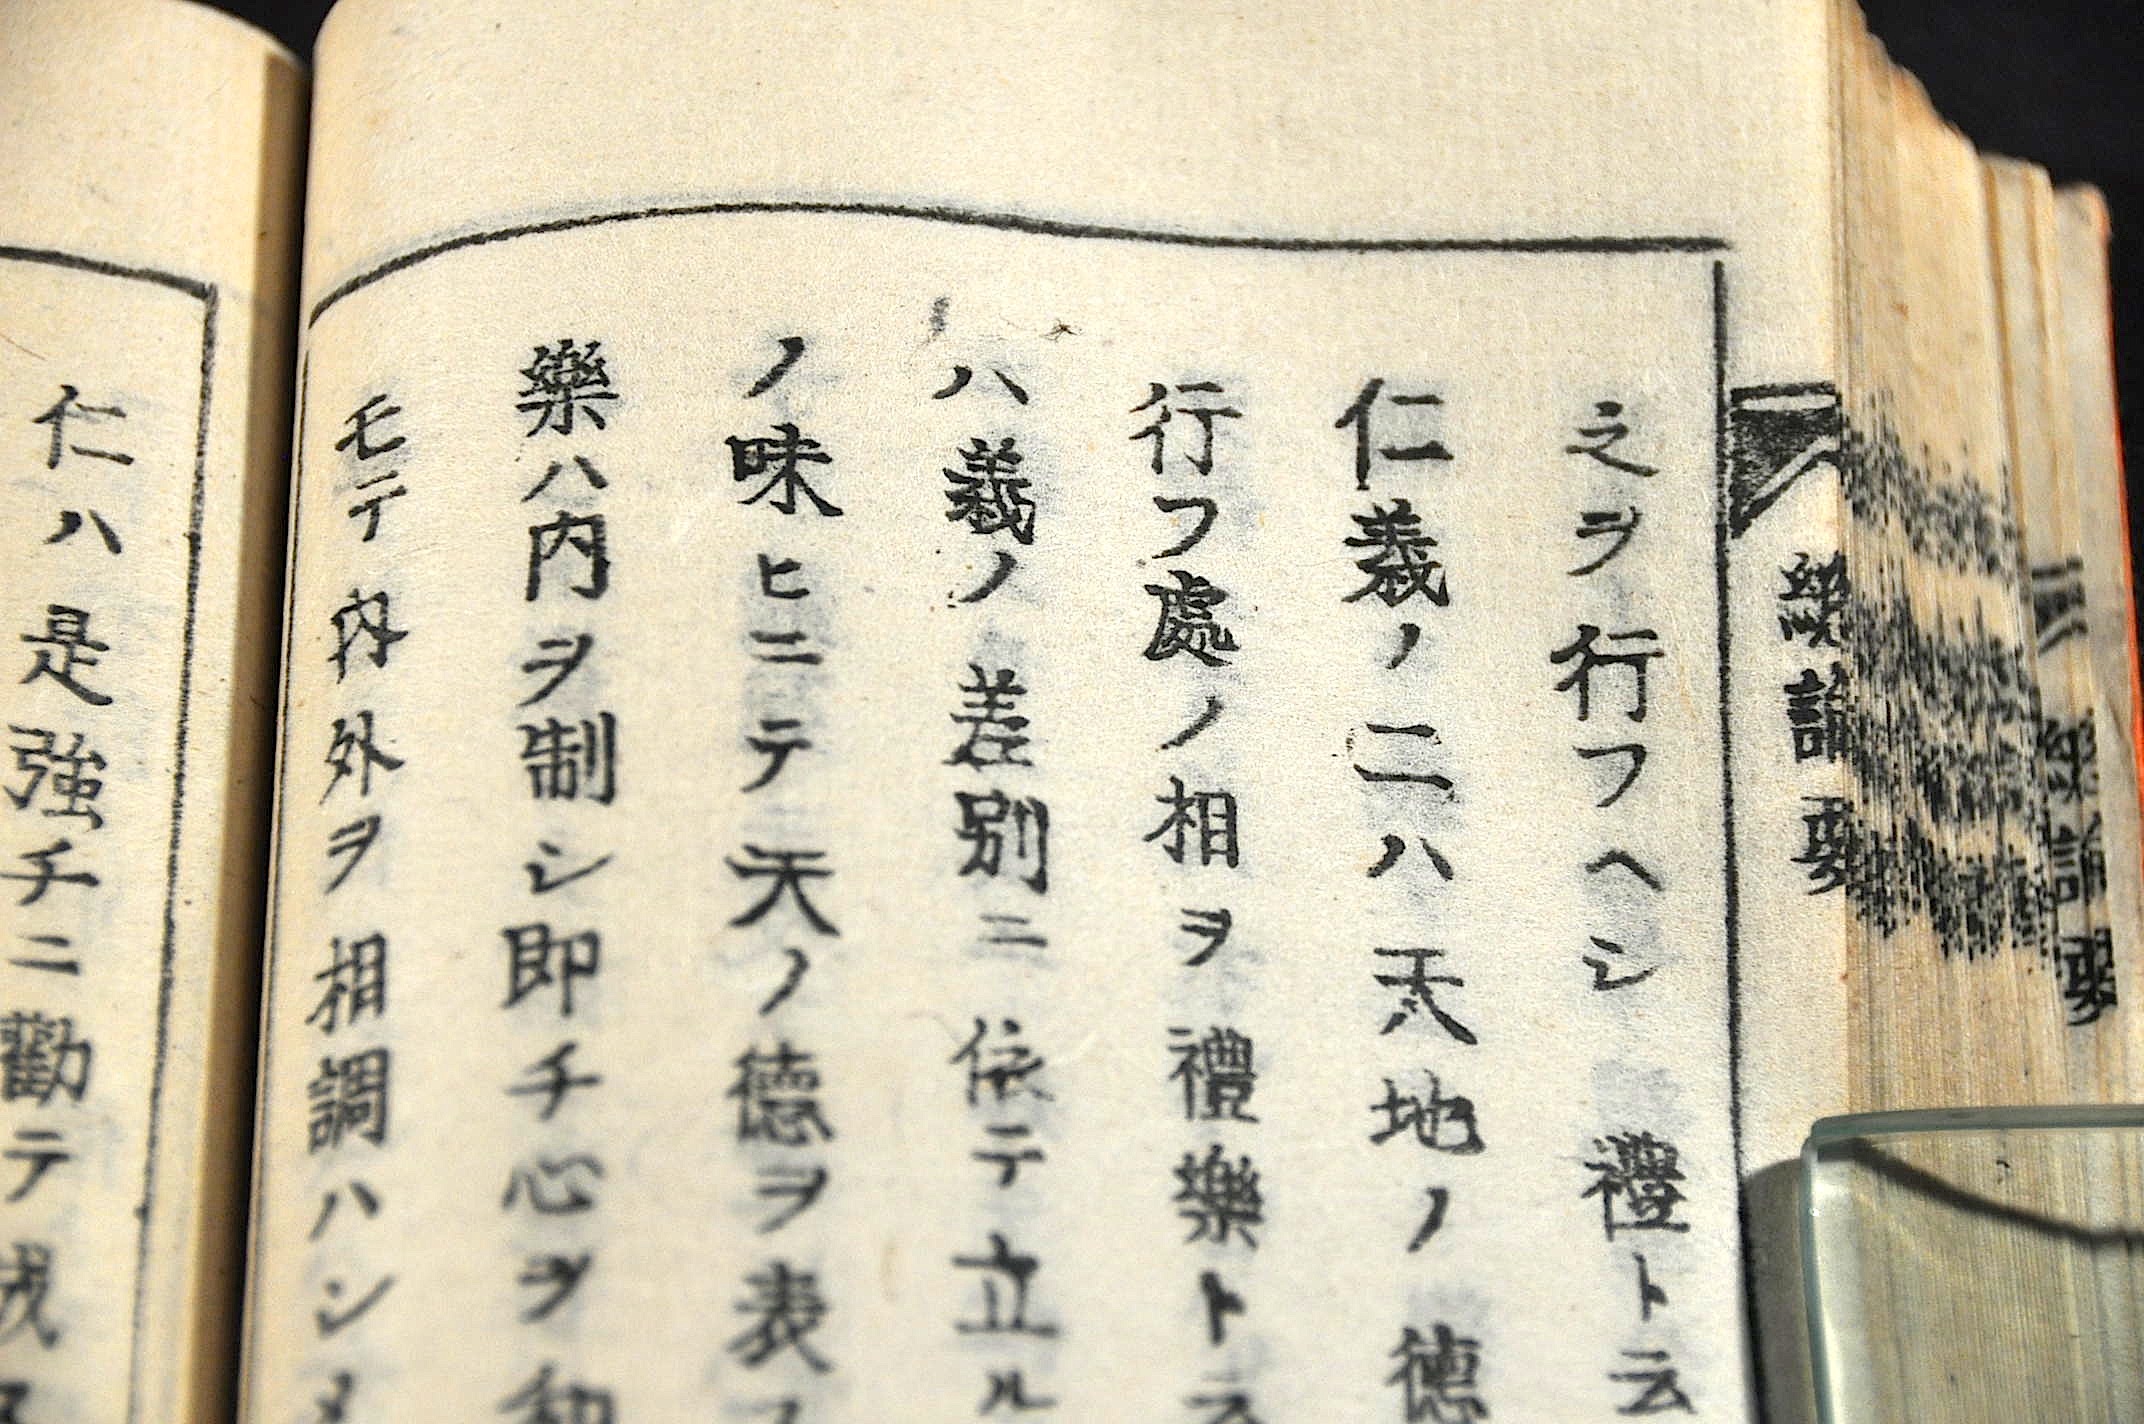 總論要
之ヲ行フヘシ禮ト云
仁義ノ二ハ天地ノ德
行フ處ノ相ヲ禮樂トス
ハ義ノ差別ニ依テ立ル
ノ味ヒニテ天ノ德ヲ表
樂ハ內ヲ制シ即チ心ヲ和
モテ内外ヲ相調ハシメ
仁ハ是強チニ勸テ
論要